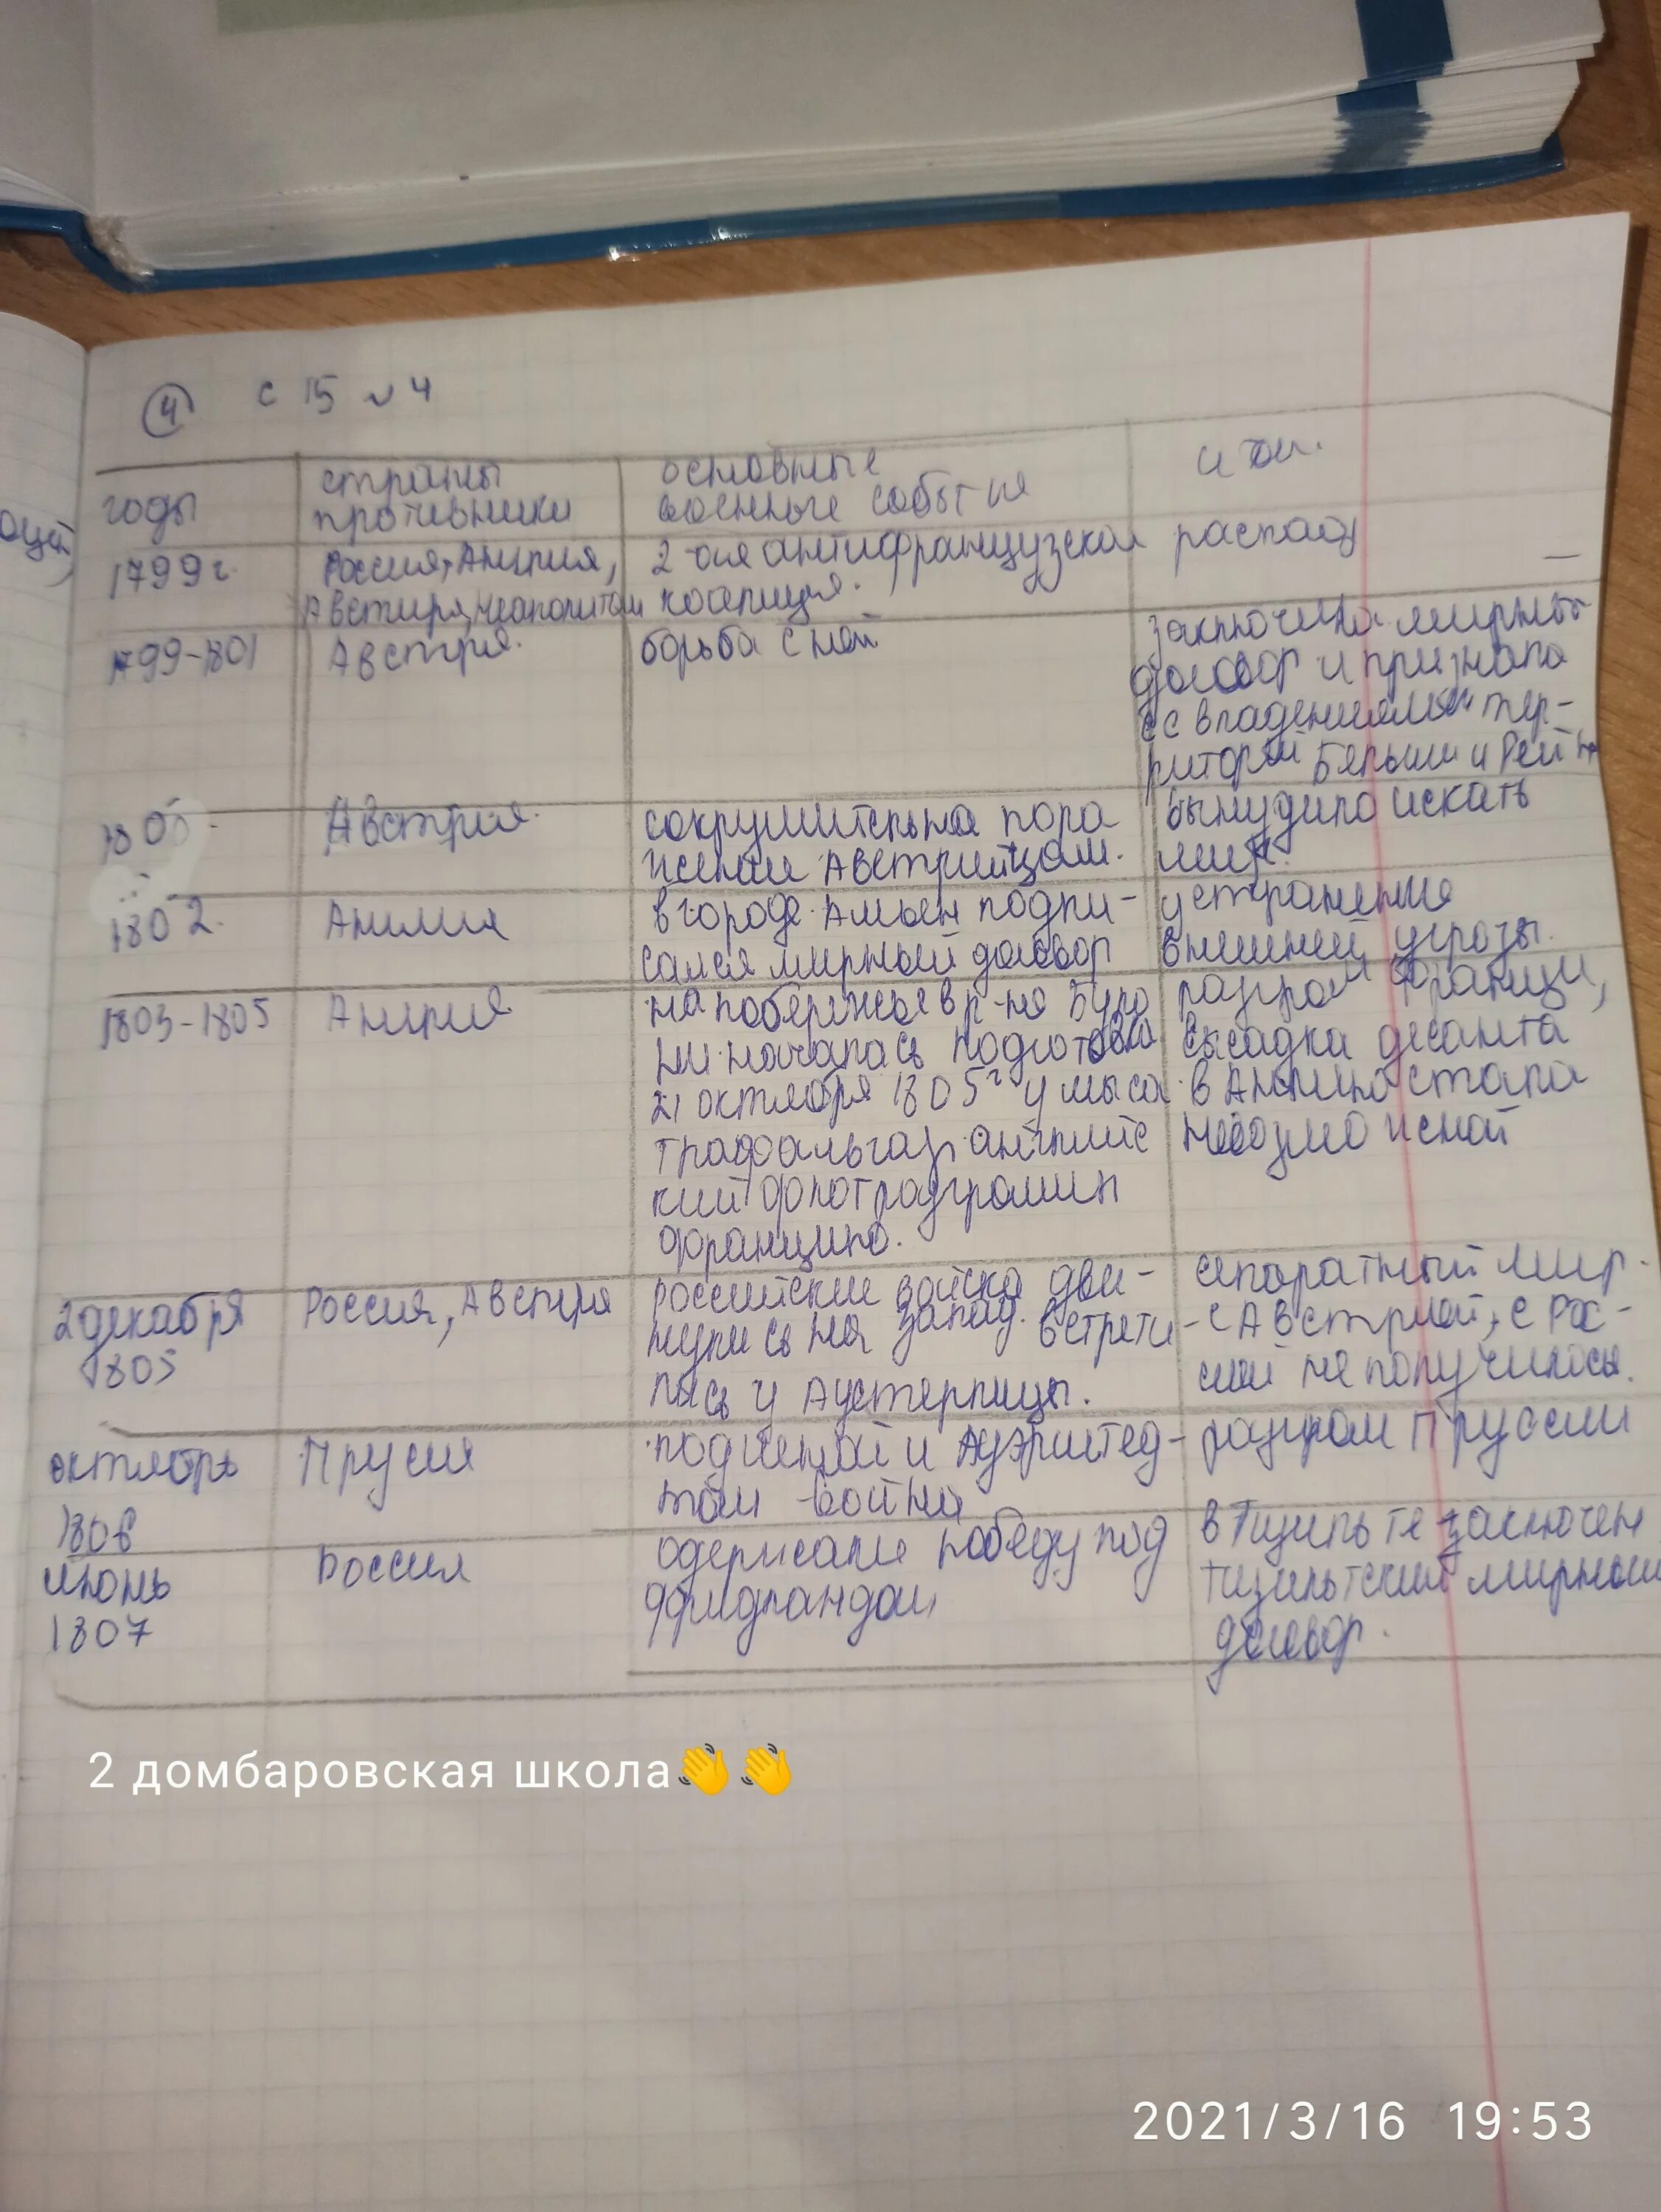 ощй,
4 с 15 №4
годы
страны
противники
основные
военные события
итог.
1799г.
Россия, Англия,
Австирия, Неаполитан
2-ая антифранцузская
коалиция.
распад
1799-1801
Австрия.
борьба с ней
заключила мирный
договор и признала
ее владениями тер-
риторий Бельгии и Рейна
1800.
Австрия.
сокрушительна пора
жении Австрийцам.
вынудило искать
мир.
1802.
Англия
в городе Амьен подпи-
сался мирный договор
устранение
внешней угрозы.
1803-1805
Англия
на побережье в р-не Було
ни началась подготовка
21 октября 1805г у мыса
Трафальгар английс
кий флот разгромил
францию.
разгром Франции,
высадка десанта
в Англию стала
невозможной
2 декабря
1805
Россия, Австрия
российские войска дви-
нулись на запад. встрети-
лись у Аустерлицы.
сепаратный мир
с Австрией, с Рос-
сией не получилось.
октябрь
1806
Прусия
под Иеной и Ауэрштед-
том война
разгром Пруссии
июнь
1807
Россия
одержали победу под
Фридландом,
в Тильзите заключен
мирный
договор.
2 домбаровская школа👋👋
2021/3/16 19:53